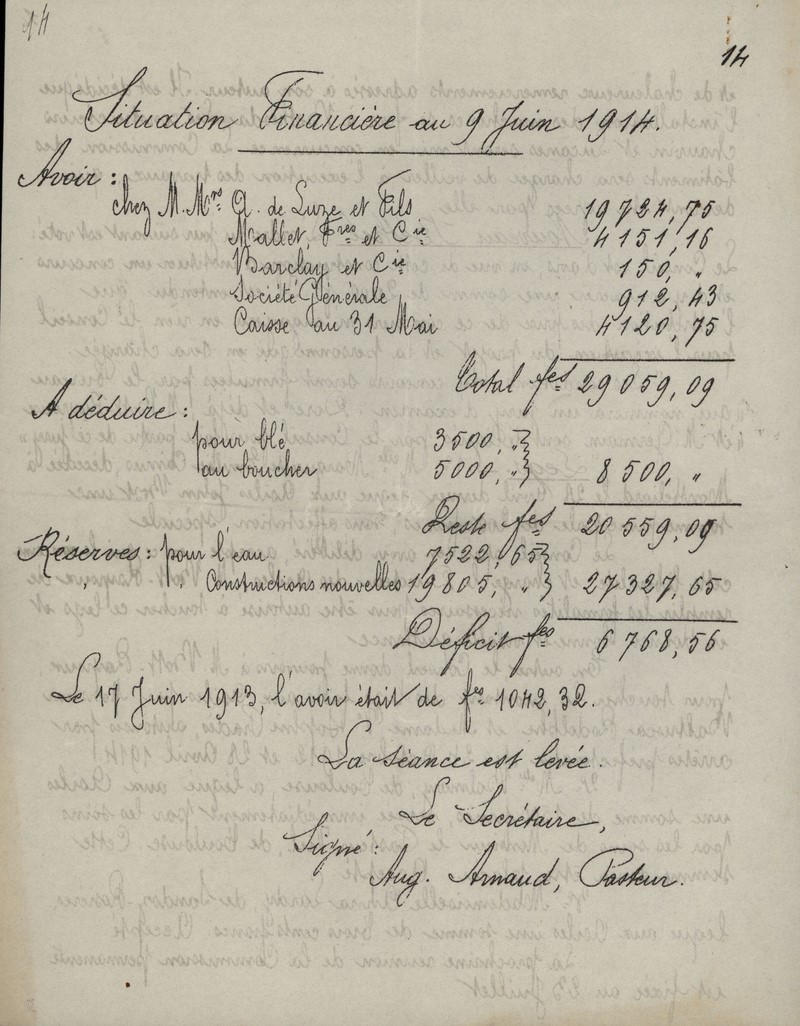 14
14
Situation Financière au 9 Juin 1914.
Avoir :
chez M. Mrs A. de Luze et Fils 19 724, 75
Mallet, Fres et Cie 4 151, 16
Barclay et Cie 150, "
Société Générale 912, 43
Caisse au 31 Mai 4 120, 75
Total fcs 29 059, 09
A déduire :
pour blé 3500, " }
au boucher 5000, " } 8 500, "
Reste fcs 20 559, 09
Réserves : pour l'eau 7522, 65 }
" " Constructions nouvelles 19 805, " } 27 327, 65
Déficit fcs 6 768, 56
Le 17 Juin 1913, l'avoir était de frs 1042, 32.
La séance est levée.
Le Secrétaire,
Signé :
Aug. Arnaud, Pasteur.